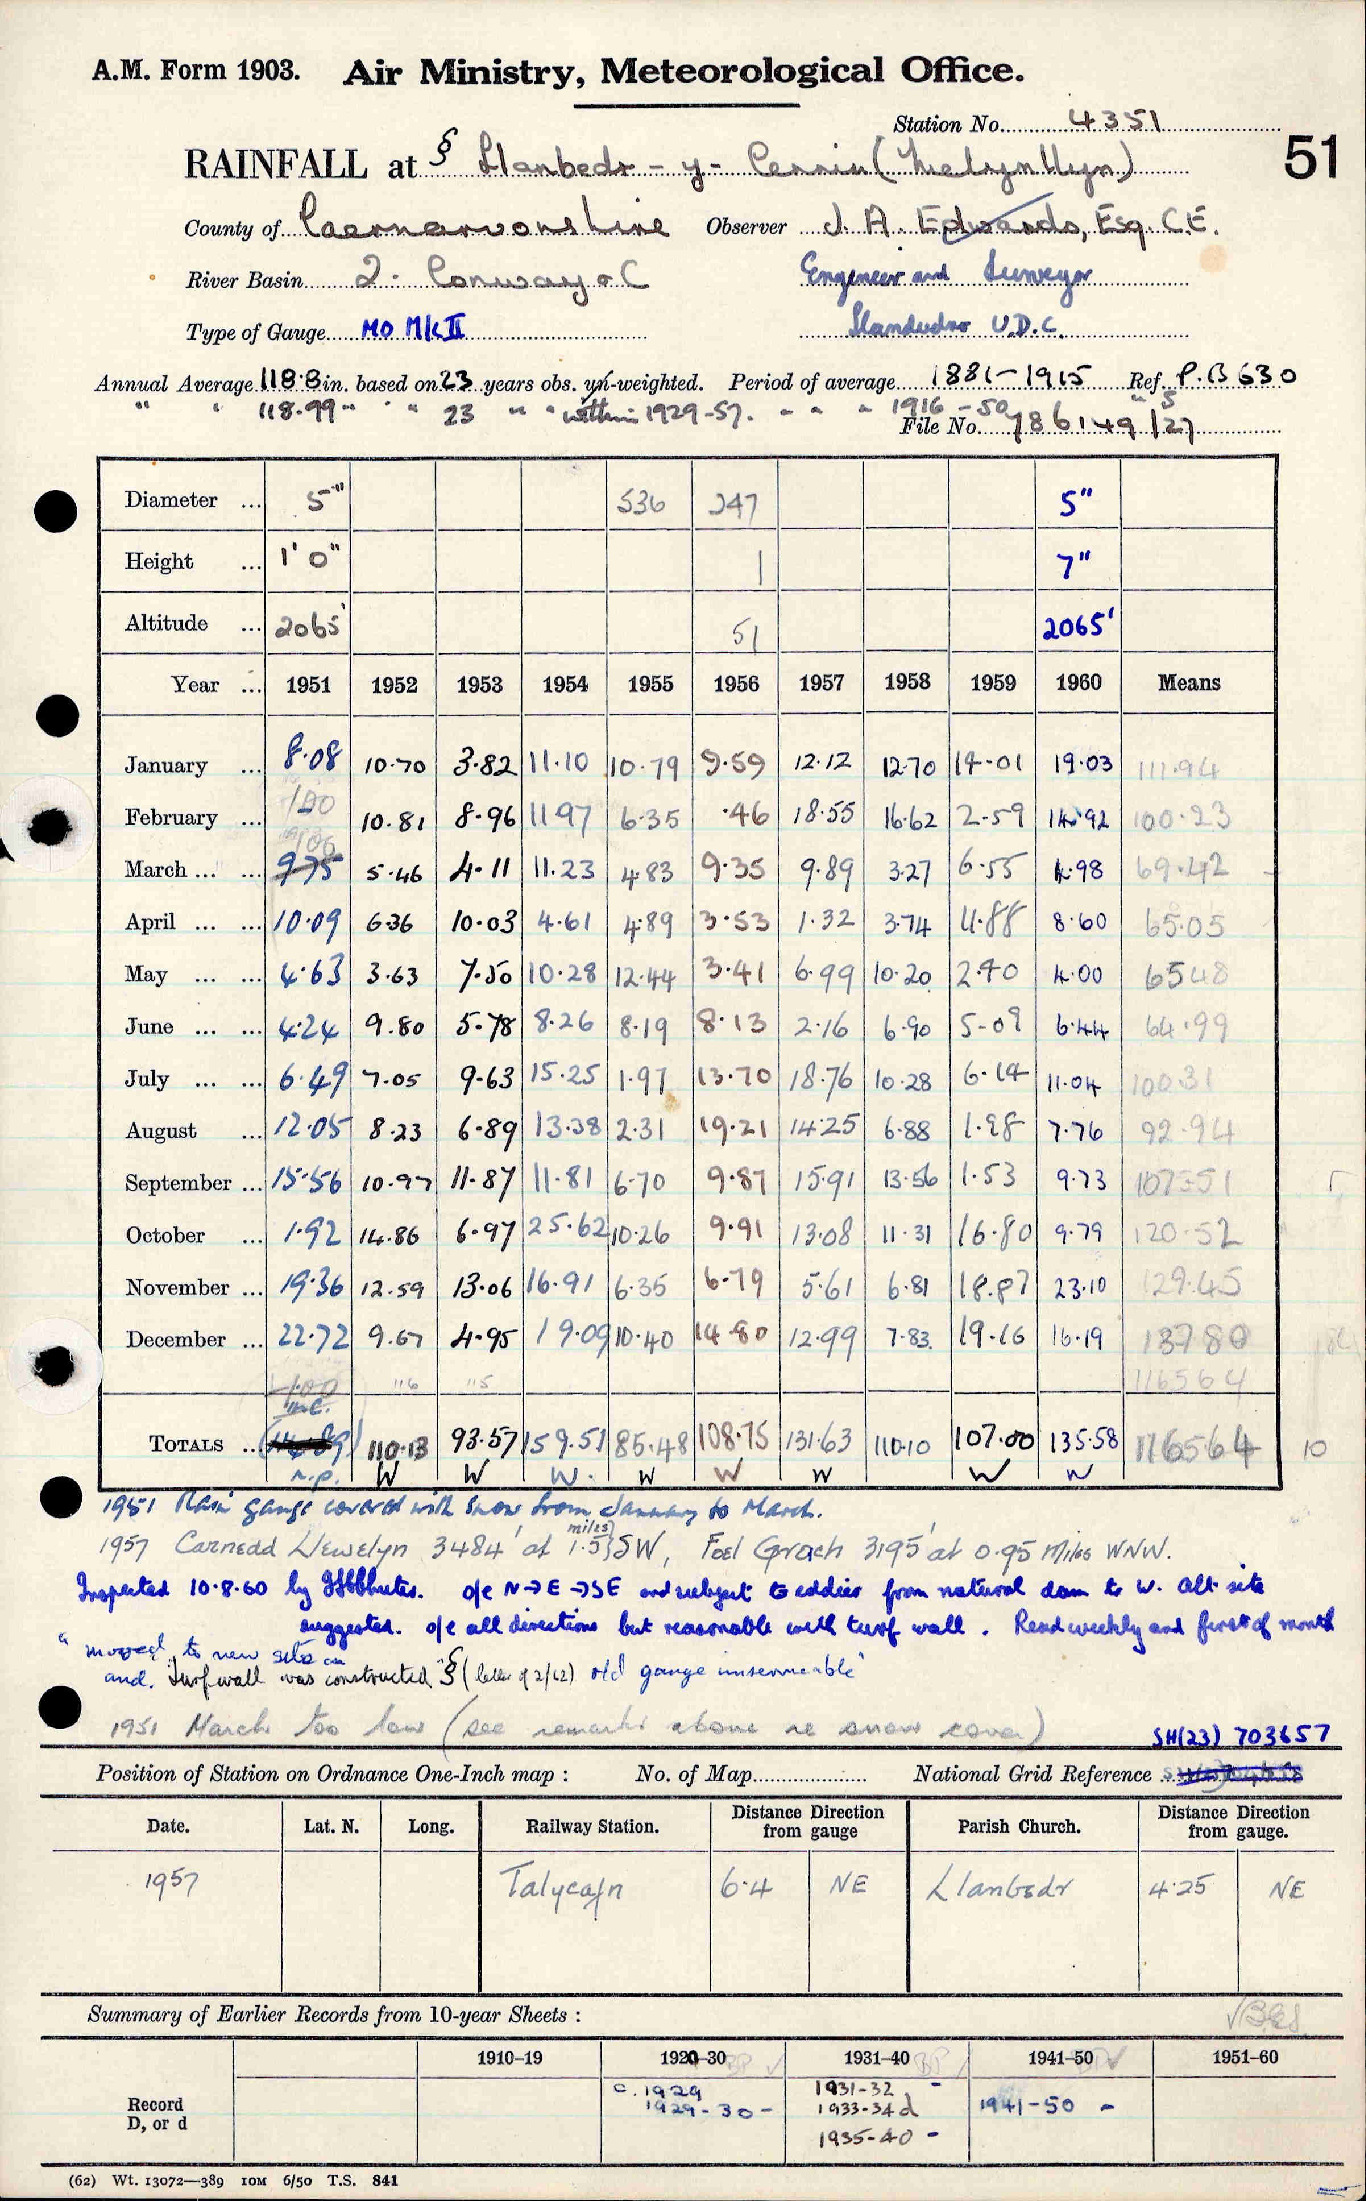 A.M. Form 1903. Air Ministry, Meteorological Office.
Station No. 4351
51
RAINFALL at § Llanbedr - y - Cennin (Melynllyn)
County of Caernarvonshire Observer J. A. Edwards, Esq. C.E.
River Basin 2. Conway & C Engineer and Surveyor
Type of Gauge MO Mk II Llandudno U.D.C.
Annual Average 118.8 in. based on 23 years obs. un-weighted. Period of average 1881-1915 Ref. P.B 630
" " 118.99 " " " 23 " " within 1929-57. " " " 1916-50 " S
File No. 786149/27
Diameter ... 5" 536 247 5"
Height ... 1' 0" 1 7"
Altitude ... 2065' 51 2065'
Year ... 1951 1952 1953 1954 1955 1956 1957 1958 1959 1960 Means
January ... 8.08 10.70 3.82 11.10 10.79 9.59 12.12 12.70 14.01 19.03 111.94
February ... 10.81 8.96 11.97 6.35 .46 18.55 16.62 2.59 14.92 100.23
March ... ... 9.75 5.46 4.11 11.23 4.83 9.35 9.89 3.27 6.55 4.98 69.42
April ... ... 10.09 6.36 10.03 4.61 4.89 3.53 1.32 3.74 11.88 8.60 65.05
May ... ... 4.63 3.63 7.50 10.28 12.44 3.41 6.99 10.20 2.40 4.00 65.48
June ... ... 4.24 9.80 5.78 8.26 8.19 8.13 2.16 6.90 5.09 6.44 64.99
July ... ... 6.49 7.05 9.63 15.25 1.97 13.70 18.76 10.28 6.14 11.04 100.31
August ... 12.05 8.23 6.89 13.38 2.31 19.21 14.25 6.88 1.98 7.76 92.94
September ... 15.56 10.97 11.87 11.81 6.70 9.87 15.91 13.56 1.53 9.73 107.51
October ... 1.92 14.86 6.97 25.62 10.26 9.91 13.08 11.31 16.80 9.79 120.52
November ... 19.36 12.59 13.06 16.91 6.35 6.79 5.61 6.81 18.87 23.10 129.45
December ... 22.72 9.67 4.95 19.09 10.40 14.80 12.99 7.83 19.16 16.19 137.80
116 115 1165 64
TOTALS ... 110.13 93.57 159.51 85.48 108.75 131.63 110.10 107.00 135.58 1165.64 10
n.p. W W W. W W W W W
1951 Rain gauge covered with snow from January to March.
1957 Carnedd Llewelyn 3484' at 1.5 miles SW, Foel Grach 3195' at 0.95 miles WNW.
Inspected 10.8.60 by o/e N→E→SE and subject to eddies from natural dam to W. Alt. site
suggested. o/e all directions but reasonable with turf wall. Read weekly and first of month
"moved to new site
and. Turf wall was constructed" § (letter of 2/62) old gauge unserviceable
1951 March too low (see remarks above re snow cover)
SH(23) 703657
Position of Station on Ordnance One-Inch map : No. of Map National Grid Reference
Date. Lat. N. Long. Railway Station. Distance Direction from gauge Parish Church. Distance Direction from gauge.
1957 Talycafn 6.4 NE Llanbedr 4.25 NE
Summary of Earlier Records from 10-year Sheets :
1910–19 1920–30 1931–40 1941–50 1951–60
Record D, or d
c. 1929 1931-32 -
1929-30 - 1933-34 d 1941-50 -
1935-40 -
(62) Wt. 13072—389 10M 6/50 T.S. 841